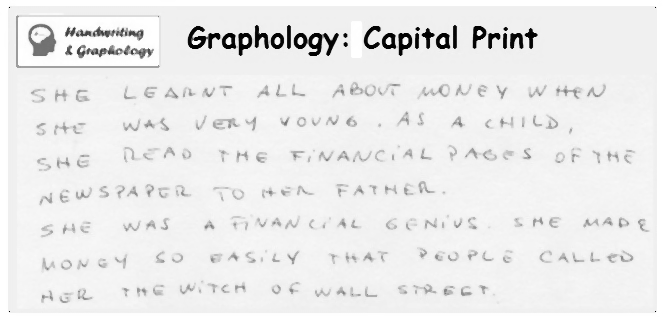 Handwriting
& Graphology
Graphology: Capital Print
SHE LEARNT ALL ABOUT MONEY WHEN
SHE WAS VERY YOUNG. AS A CHILD,
SHE READ THE FINANCIAL PAGES OF THE
NEWSPAPER TO HER FATHER.
SHE WAS A FINANCIAL GENIUS. SHE MADE
MONEY SO EASILY THAT PEOPLE CALLED
HER THE WITCH OF WALL STREET.